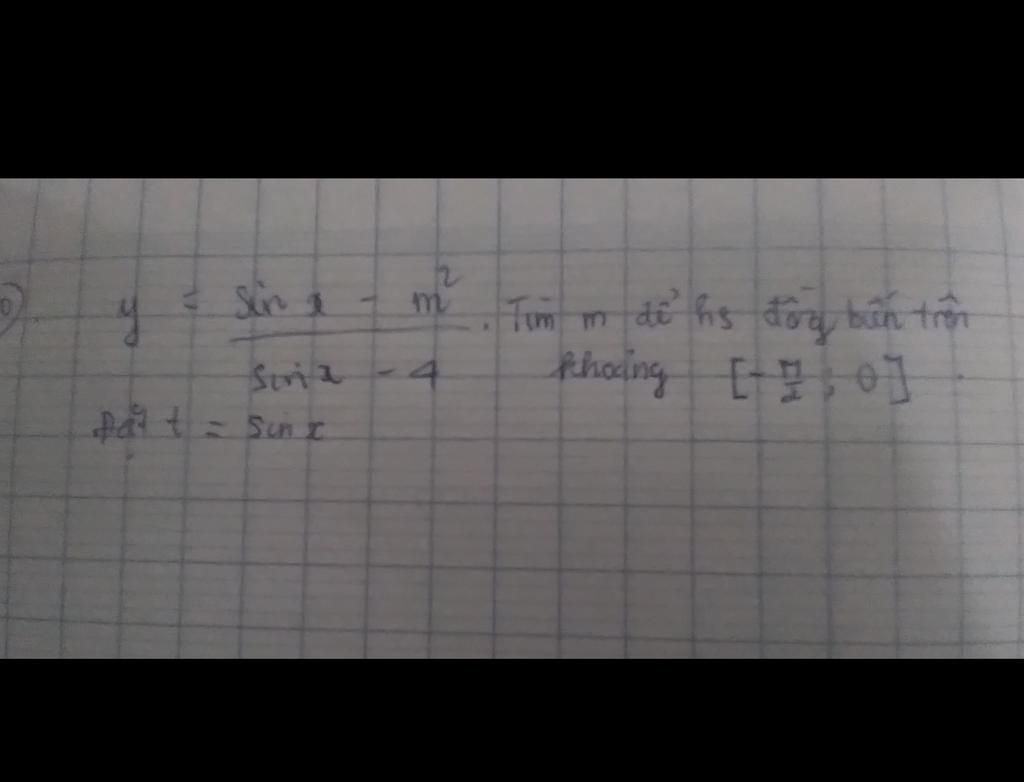 6). y = (sin x - m²)/(sin x - 4). Tìm m để hs đồng biến trên
khoảng [-π/2 ; 0].
Đặt t = sin x